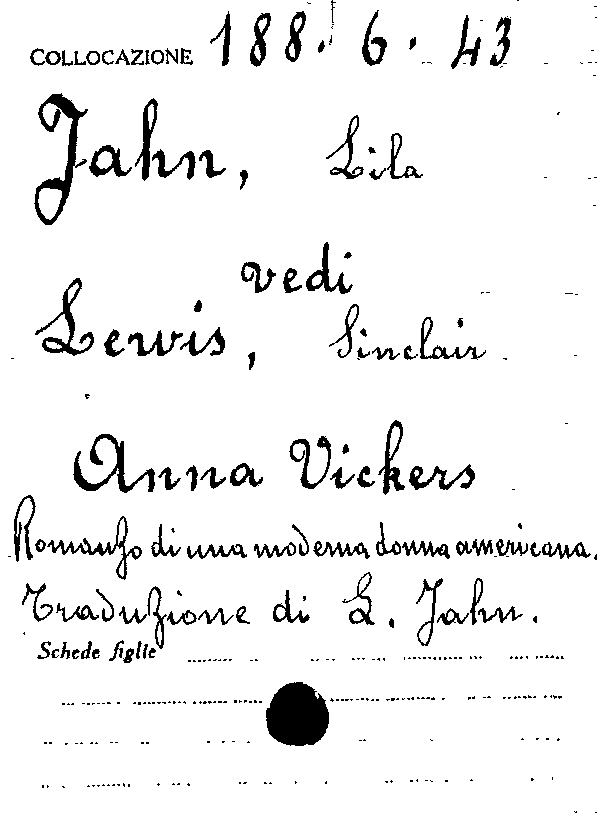 COLLOCAZIONE 188. 6. 43
Jahn, Lila
vedi
Lewis, Sinclair
Anna Vickers
Romanzo di una moderna donna americana.
Traduzione di L. Jahn.
Schede figlie